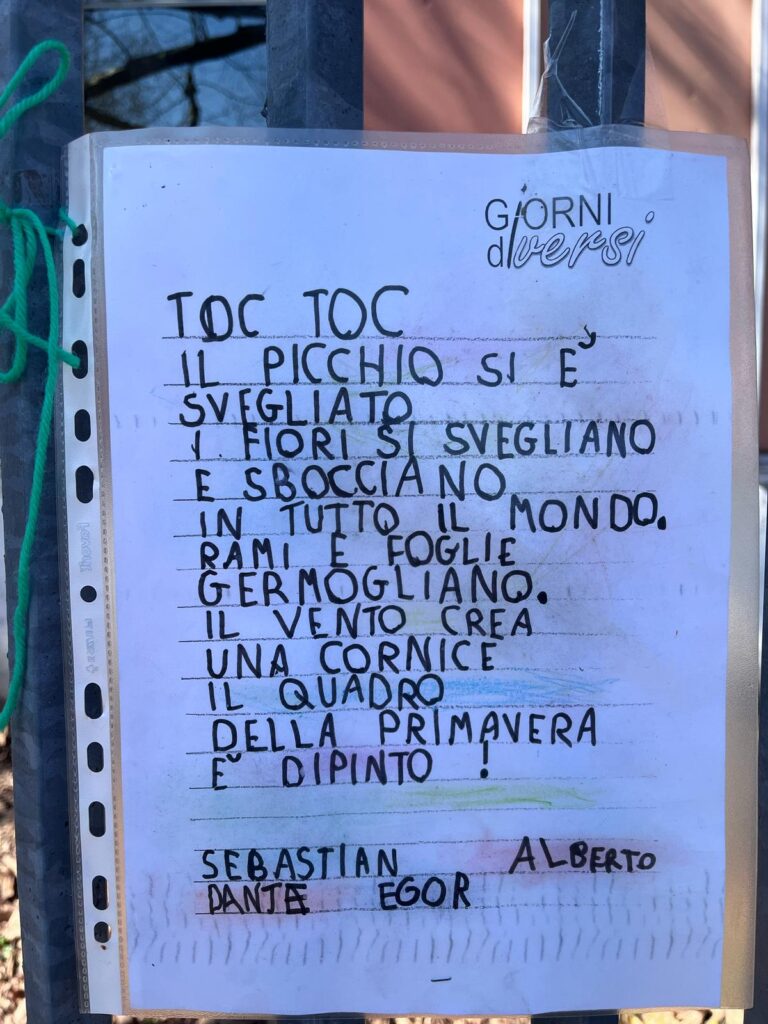 GiORNI
diversi
TOC TOC
IL PICCHIO SI È
SVEGLIATO
I FIORI SI SVEGLIANO
E SBOCCIANO
IN TUTTO IL MONDO.
RAMI E FOGLIE
GERMOGLIANO.
IL VENTO CREA
UNA CORNICE
IL QUADRO
DELLA PRIMAVERA
È DIPINTO !
SEBASTIAN ALBERTO
DANTE EGOR